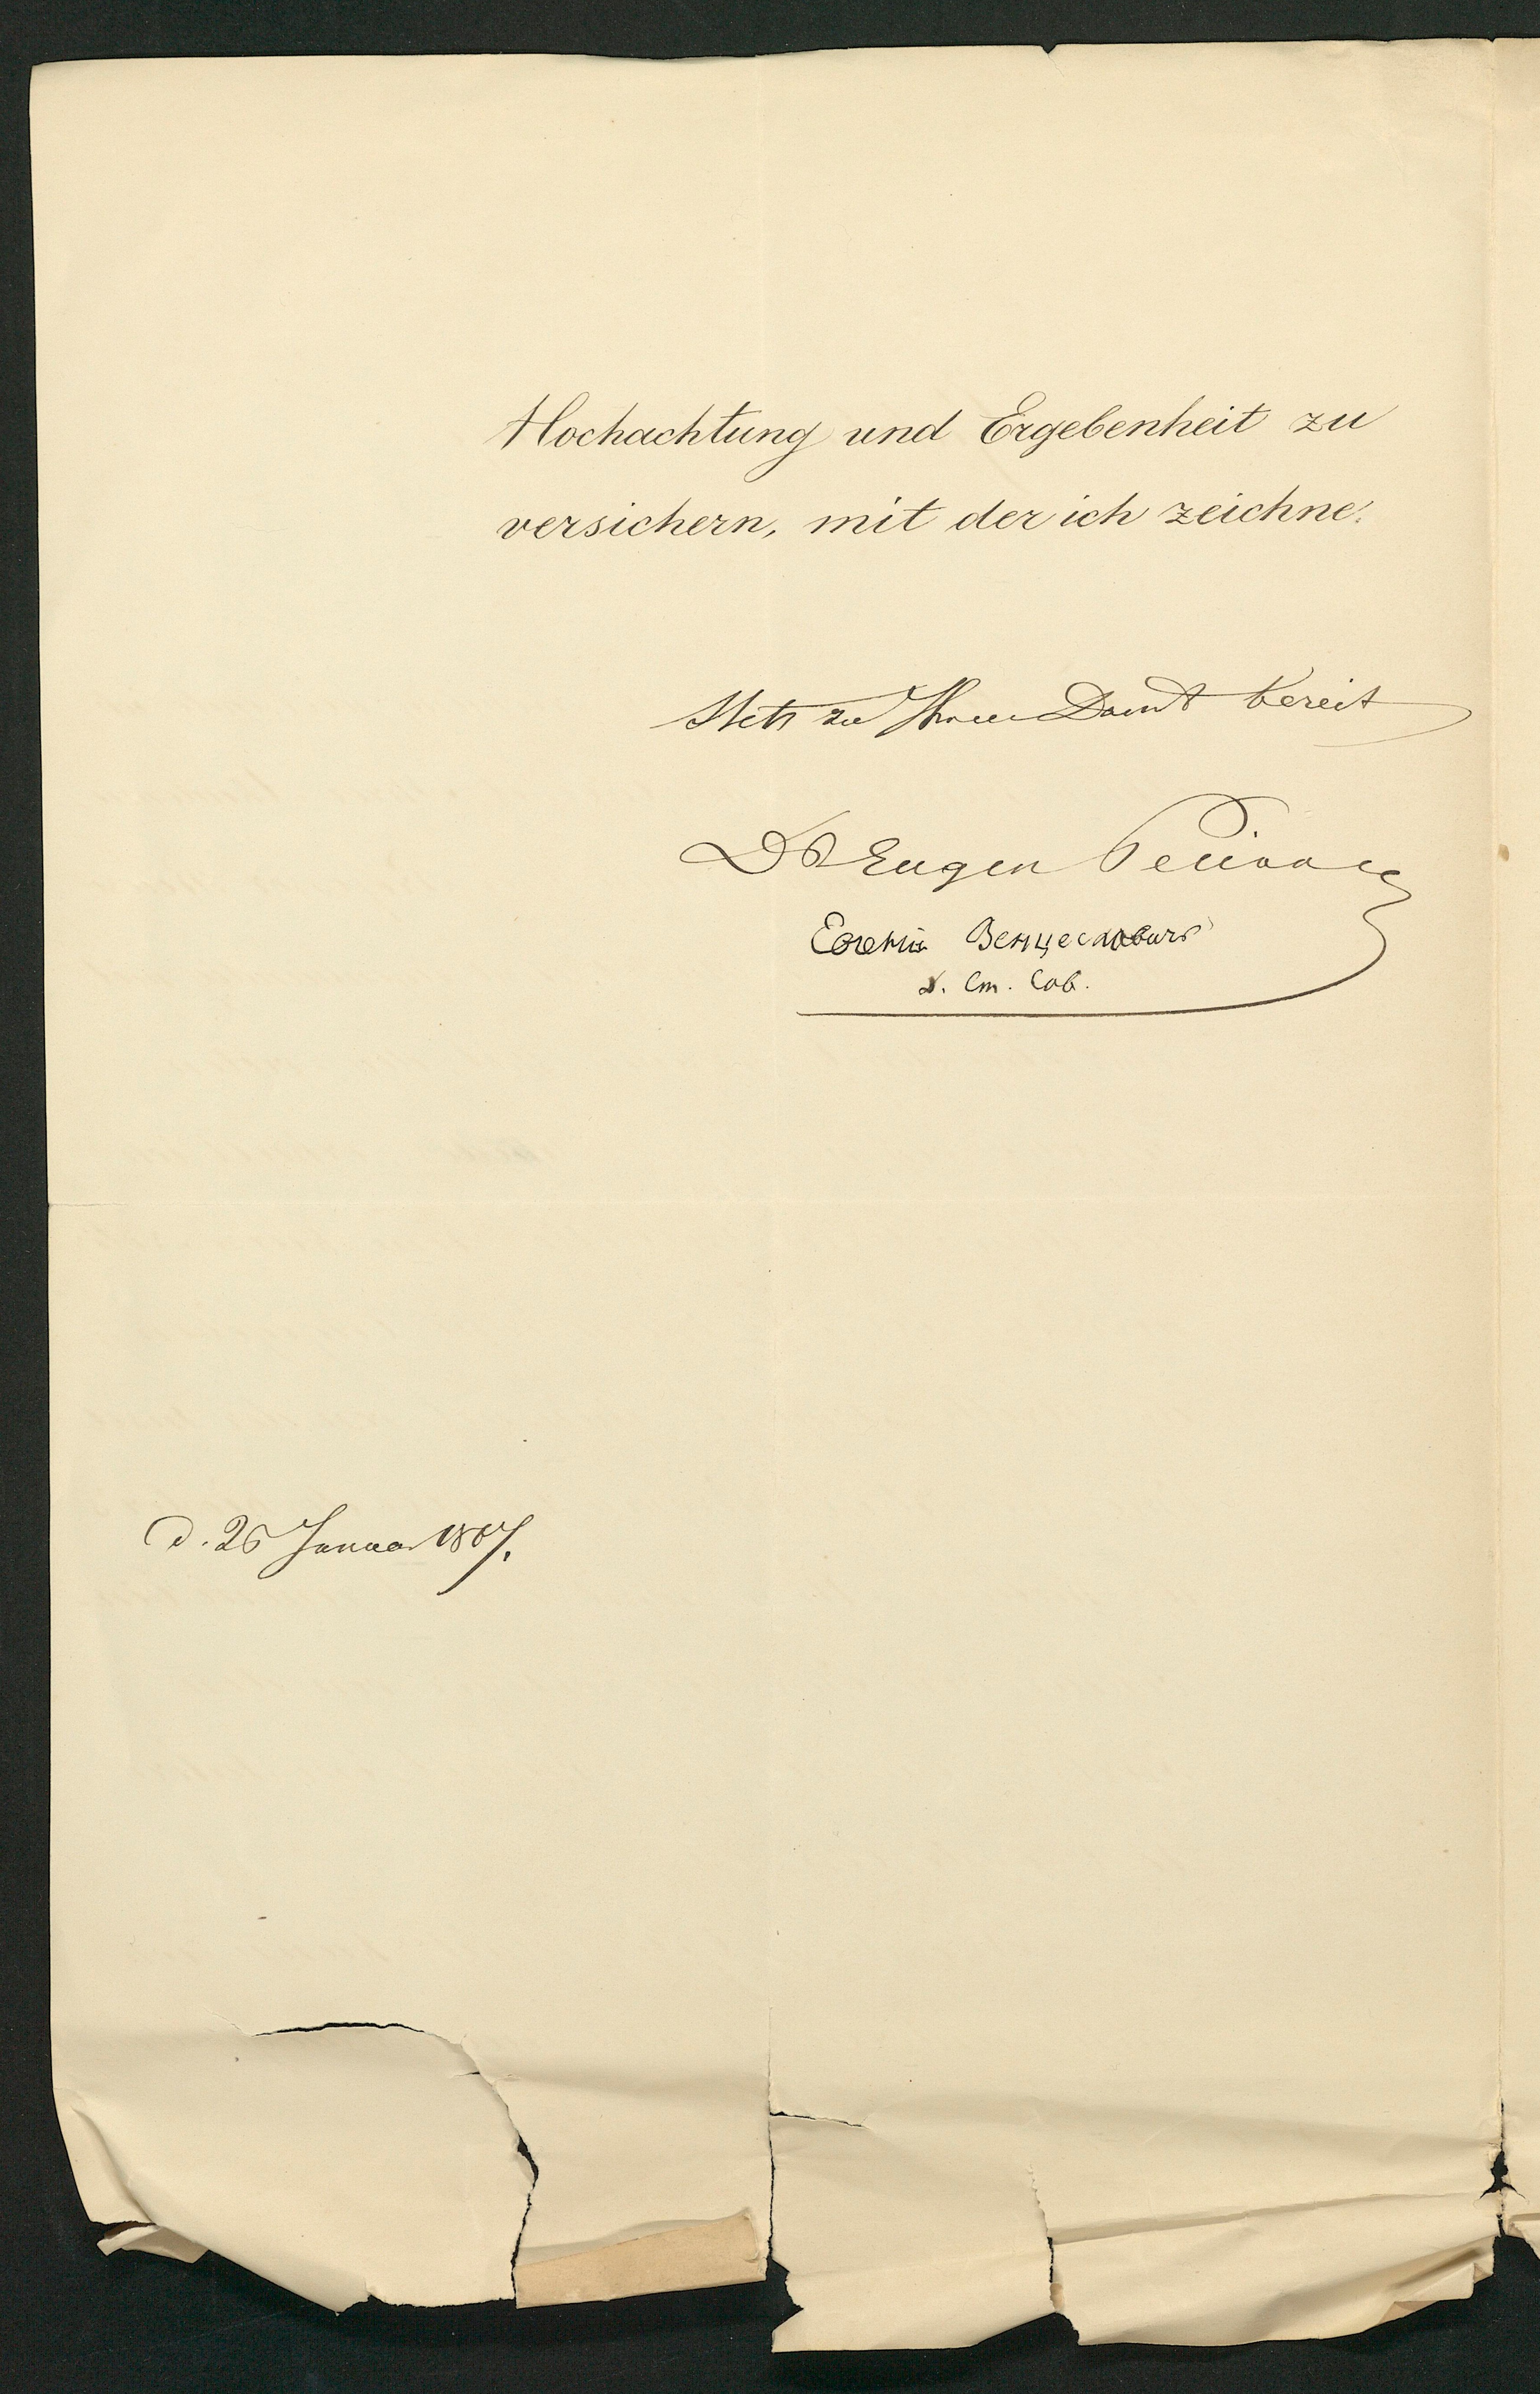 Hochachtung und Ergebenheit zu
versichern, mit der ich zeichne.
Stets zu Ihrem Dienst bereit
Dr Eugen Pelikan
Евгеній Венцеславичъ
д. Ст. Сов.
d. 26 Januar 1867.